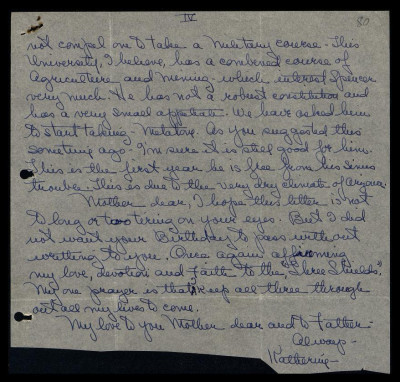 IV
80
not compel one to take a military course. This
University, I believe, has a combined course of
Agriculture and mining which interest Spencer
very much. He has not a robust constitution and
has a very small appetite. We have asked him
to start taking Metatone. As you suggested this
sometime ago. I'm sure it is still good for him.
This is the first year he is free from his sinus
trouble. This is due to the very dry climate of
Mother dear, I hope this letter is not
to long or too tering on your eyes. But I did
not want your Birthday to pass without
writting to you. Once again affirming
my love, devotion and Faith to the "Three Shields".
My one prayer is that keep all three through
out all my lives to come.
My love to you Mother dear and to Father.
Always -
Katherine -